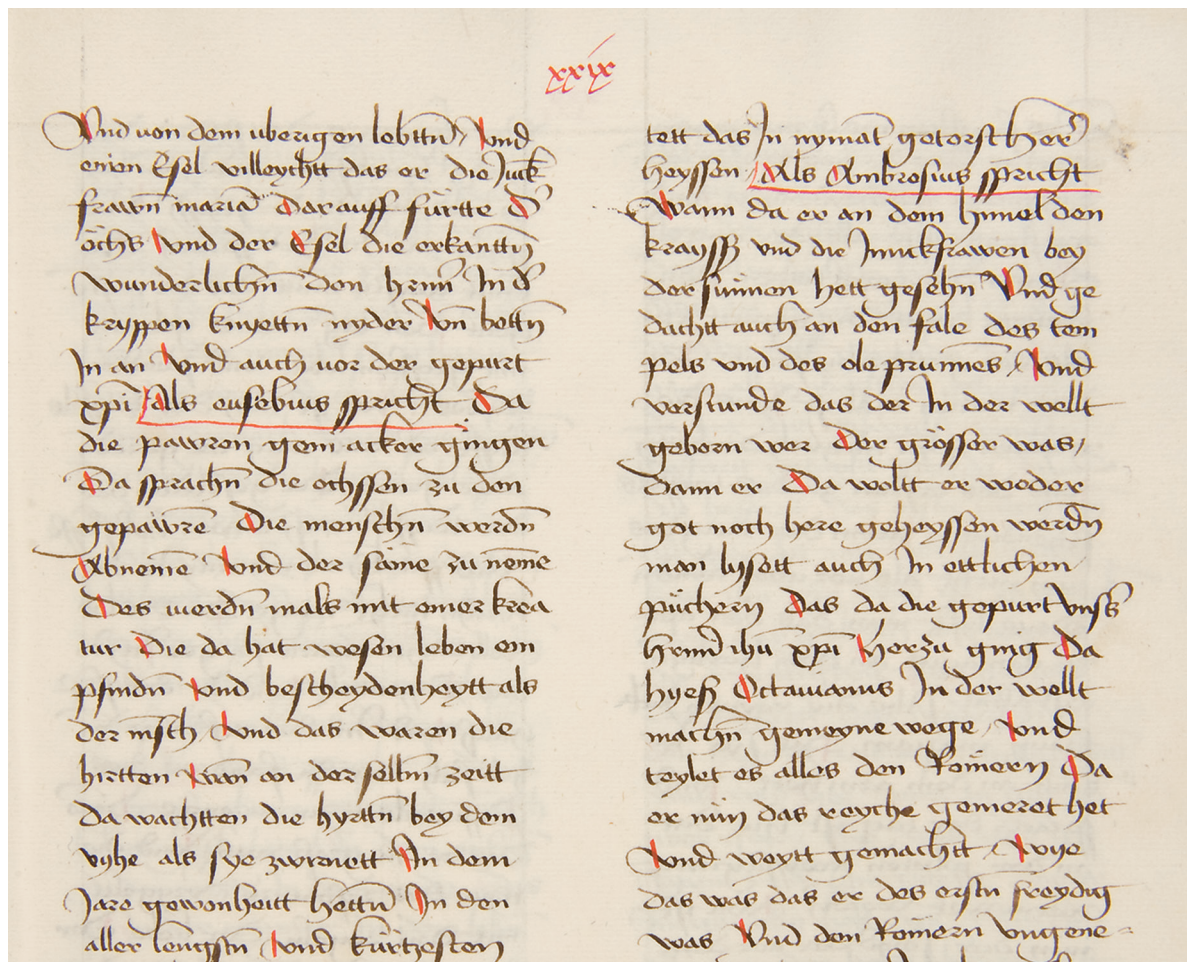 xxix
Vnd von dem uberigen lebttn̄ / Vnd
einen Esel villeychtt das er die Juck
frawn̄ mariā Darauff fürtte d'
öchs Vnd der Esel die erkanttn̄
wunderlichn̄ den hrnn̄ In d'
kryppen knyettn̄ nyder Vn̄ bettn̄
In an Vnd auch vor der gepurt
xpi Als eusebius spricht Da
die pawren gem acker gingen
Da sprachn̄ die ochssen zu den
gepäwrē Die menschn̄ werdn̄
Abnemē Vnd der säme zu nemē
Des werdn̄ mals mit einer krea
tur Die da hat wesen leben em
pfindn̄ Vnd bescheydenheytt als
der mēsch / Vnd das waren die
hirtten wan̄ an der selbn̄ zeitt
da wachtten die hyrttn̄ bey dem
vyhe als sye zwrnett In dem
Jare gewonheitt hettn̄ In den
aller lengstn̄ Vnd kürtzesten
tett das In nymāt getorst her̄
heyssen / Als Ambrosius spricht
Wann da er an dem himel den
krayss vnd die Junckfrawen bey
der sunnen hett gesehn̄ Vnd ge
dachtt auch an den fale des tem
pels vnd des ole prunnēs / Vnd
verstunde das der In der wellt
geborn wer Der grösser was /
dann er Da woltt er weder
got noch here geheyssen werdn̄
man lysett auch In ettlichen
püchern Das da die gepurt Vnss'
hrnn̄ ihū xpi herzu ging Da
hyess Octauianus In der wellt
machn̄ gemeyne wege / Vnd
teylet es alles den Römern Da
er nun das reyche gemeret het
Vnd weytt gemachtt / Wye
das was das er des erstn̄ freydig
was Vnd den Römern Vngene =